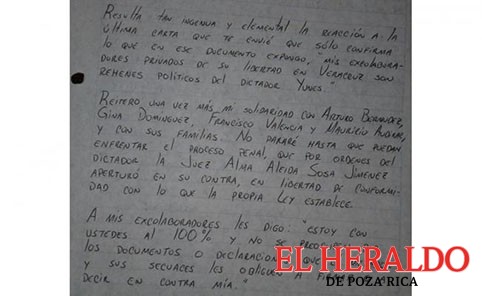 RESULTA TAN INGENUA Y ELEMENTAL LA REACCIÓN A LA
ÚLTIMA CARTA QUE TE ENVIÉ QUE SÓLO CONFIRMA
LO QUE EN ESE DOCUMENTO EXPONGO, "MIS EXCOLABORA-
DORES PRIVADOS DE SU LIBERTAD EN VERACRUZ SON
REHENES POLÍTICOS DEL DICTADOR YUNES".
REITERO UNA VEZ MÁS MI SOLIDARIDAD CON ARTURO BERMÚDEZ,
GINA DOMÍNGUEZ, FRANCISCO VALENCIA Y MAURICIO AUDIRAC,
Y CON SUS FAMILIAS. NO PARARÉ HASTA QUE PUEDAN
ENFRENTAR EL PROCESO PENAL, QUE POR ORDENES DEL
DICTADOR LA JUEZ ALMA ALEIDA SOSA JIMÉNEZ
APERTURÓ EN SU CONTRA, EN LIBERTAD DE CONFORMI-
DAD CON LO QUE LA PROPIA LEY ESTABLECE.
A MIS EXCOLABORADORES LES DIGO: "ESTOY CON
USTEDES AL 100% Y NO SE
LOS DOCUMENTOS O
Y SUS SECUACES LES
DECIR EN CONTRA MÍA."
EL HERALDO
DE POZA RICA